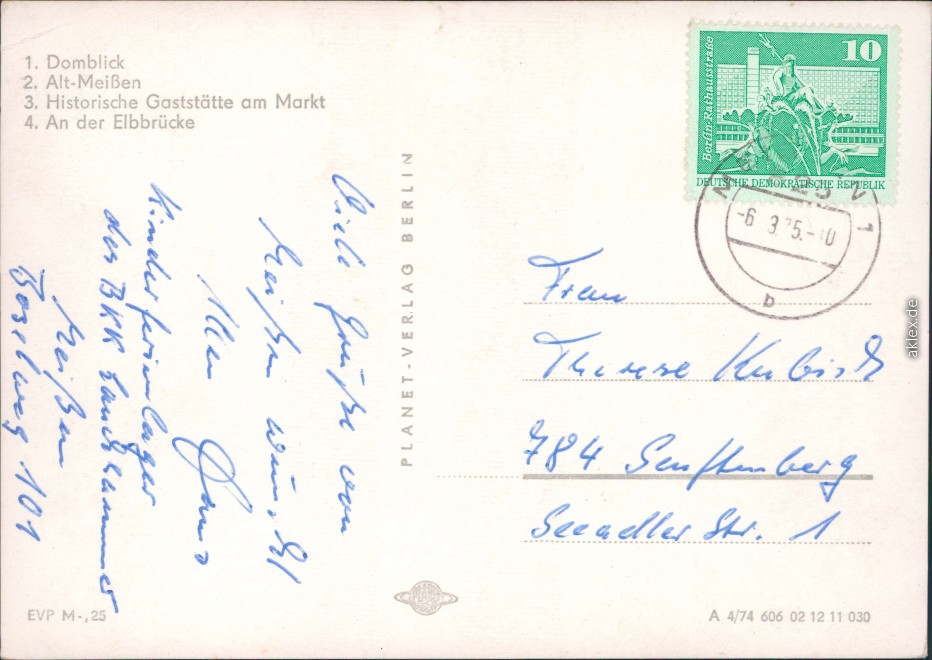 1. Domblick
2. Alt-Meißen
3. Historische Gaststätte am Markt
4. An der Elbbrücke
Viele Grüße von
Meißen wünscht
Allen Hans
Kinderferienlager
des BKK Lauchhammer
Meißen
Boselweg 101
PLANET-VERLAG BERLIN
10
Berlin·Rathausstraße
DEUTSCHE DEMOKRATISCHE REPUBLIK
-6.3.75.-10
b
Frau
Therese Kubisch
784 Senftenberg
Seeadler Str. 1
EVP M-,25
A 4/74 606 02 12 11 030
aklex.de